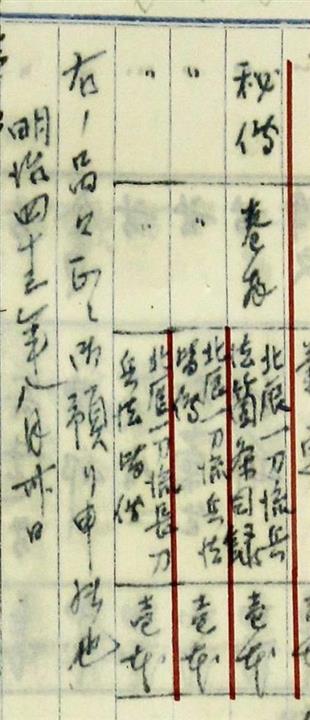 秘傳 巻存 北辰一刀流兵法箇条目録 壱本
〃 〃 北辰一刀流兵法皆傳 壱本
〃 〃 北辰一刀流長刀兵法皆傳 壱本
右ノ品口正ニ御預リ申候也
明治四十三年八月卅日